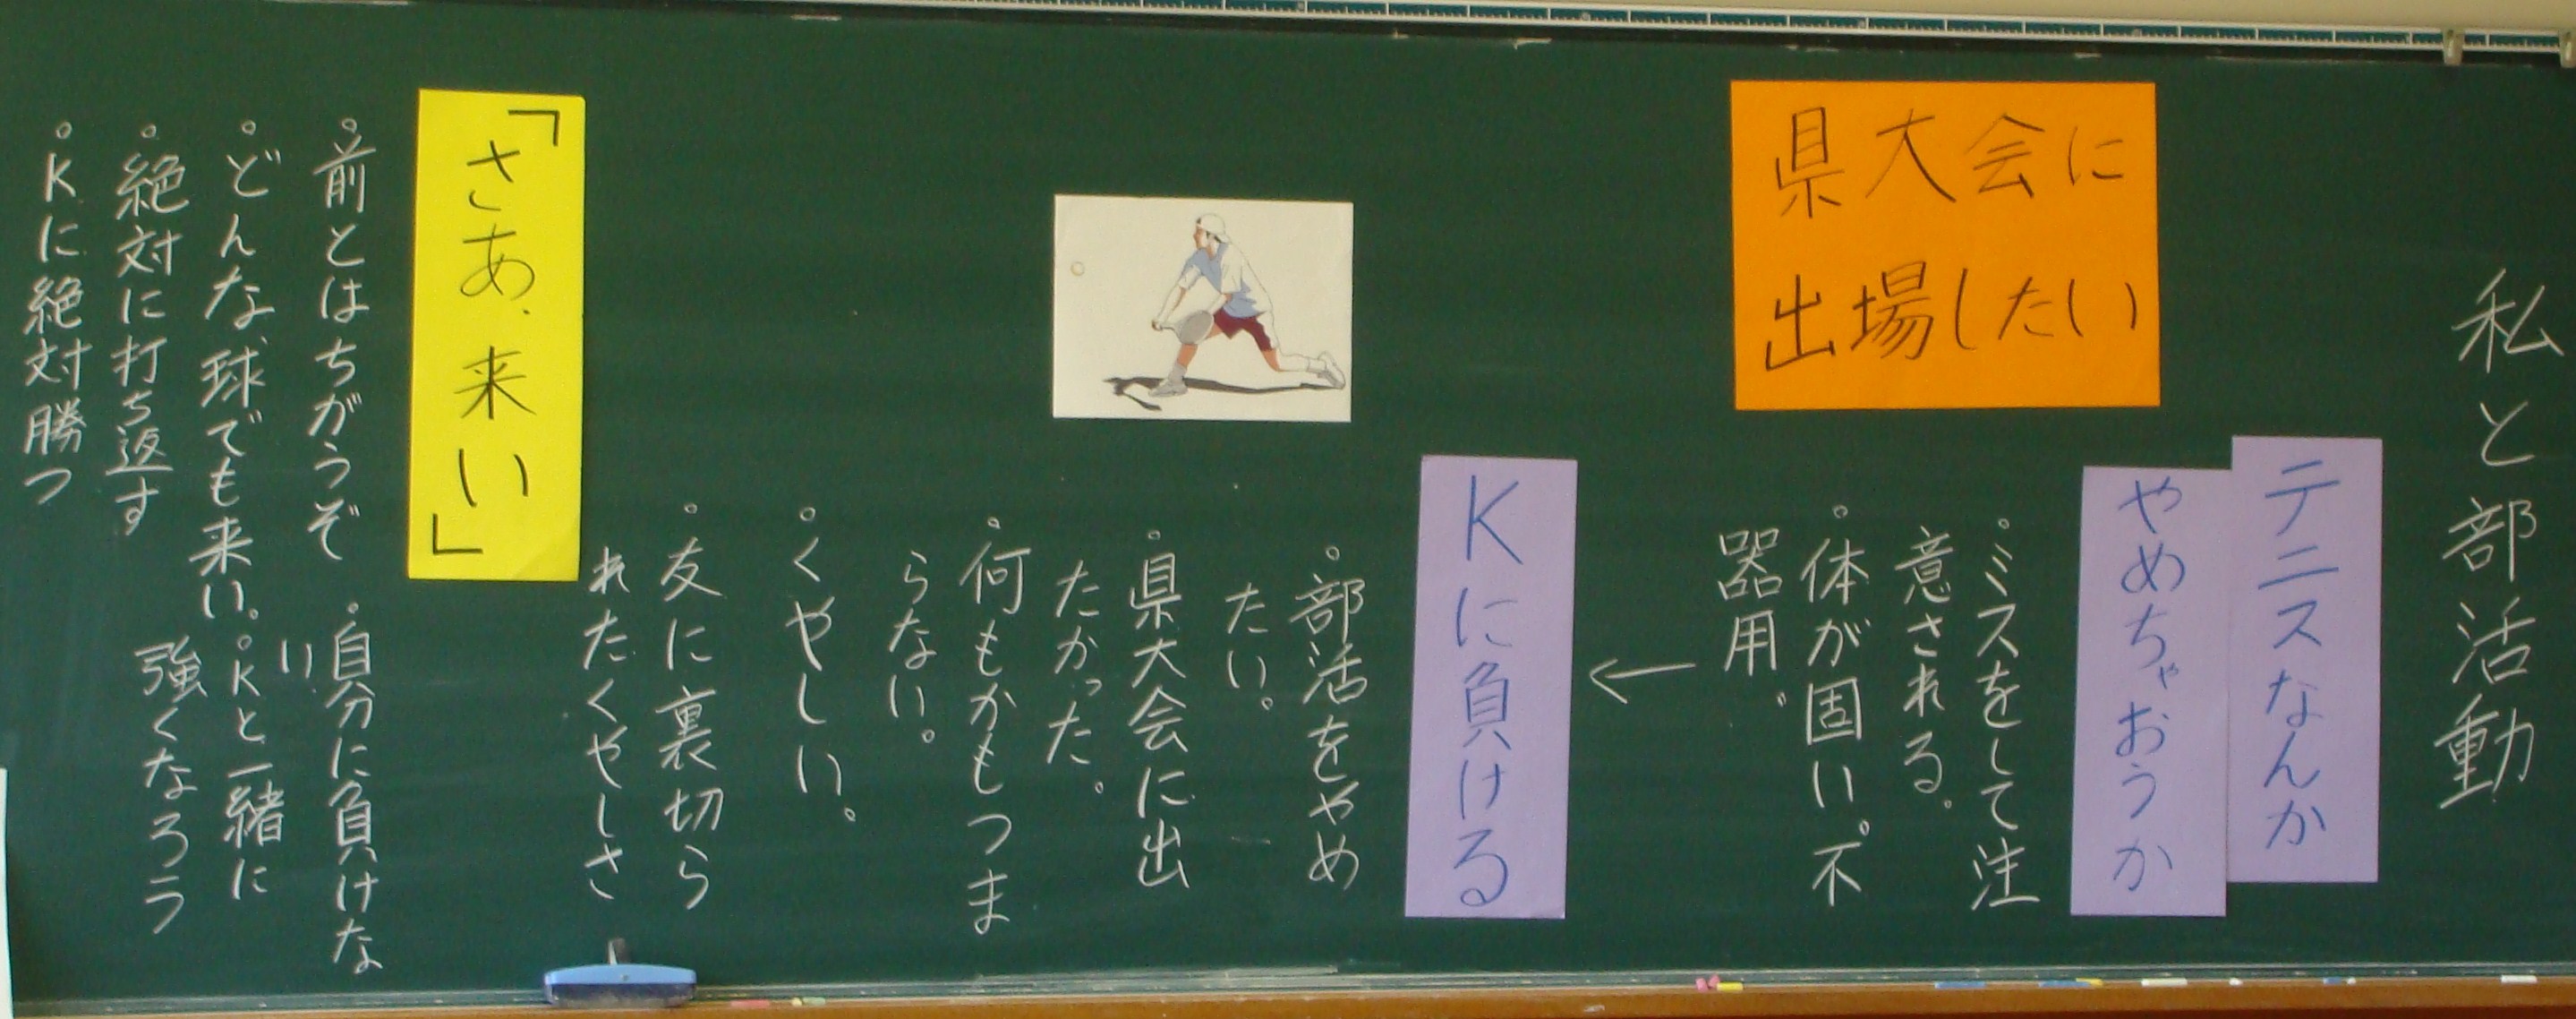 私と部活動
県大会に
出場したい
テニスなんか
やめちゃおうか
・ミスをして注
意される。
・体が固い。不
器用。
←
Kに負ける
・部活をやめ
たい。
・県大会に出
たかった。
・何もかもつま
らない。
・くやしい。
・友に裏切ら
れたくやしさ
「さあ、来い」
・前とはちがうぞ
・自分に負けな
い
・どんな球でも来い。
・Kと一緒に
強くなろう
・絶対に打ち返す
・Kに絶対勝つ